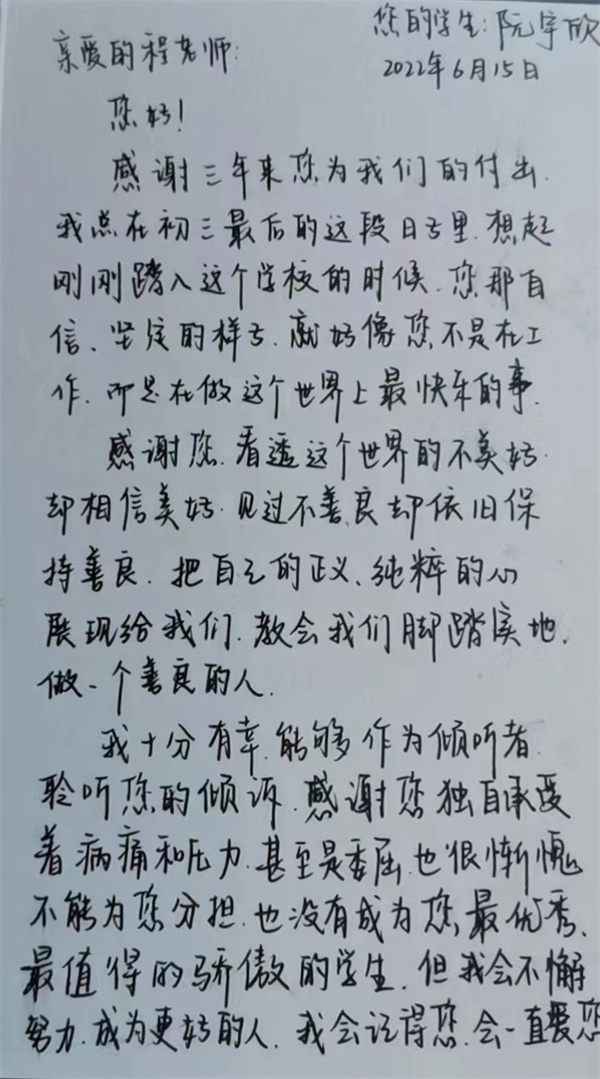 您的学生:阮宇欣
亲爱的程老师:
2022年6月15日
您好!
感谢三年来您为我们的付出.
我总在初三最后的这段日子里.想起
刚刚踏入这个学校的时候.您那自
信、坚定的样子.就好像您不是在工
作.而是在做这个世界上最快乐的事.
感谢您.看透这个世界的不美好.
却相信美好.见过不善良却依旧保
持善良.把自己的正义、纯粹的心
展现给我们.教会我们脚踏实地.
做一个善良的人.
我十分有幸.能够作为倾听者.
聆听您的倾诉.感谢您独自承受
着病痛和压力.甚至是委屈.也很惭愧
不能为您分担.也没有成为您最优秀、
最值得的骄傲的学生.但我会不懈
努力.成为更好的人.我会记得您.会一直爱您